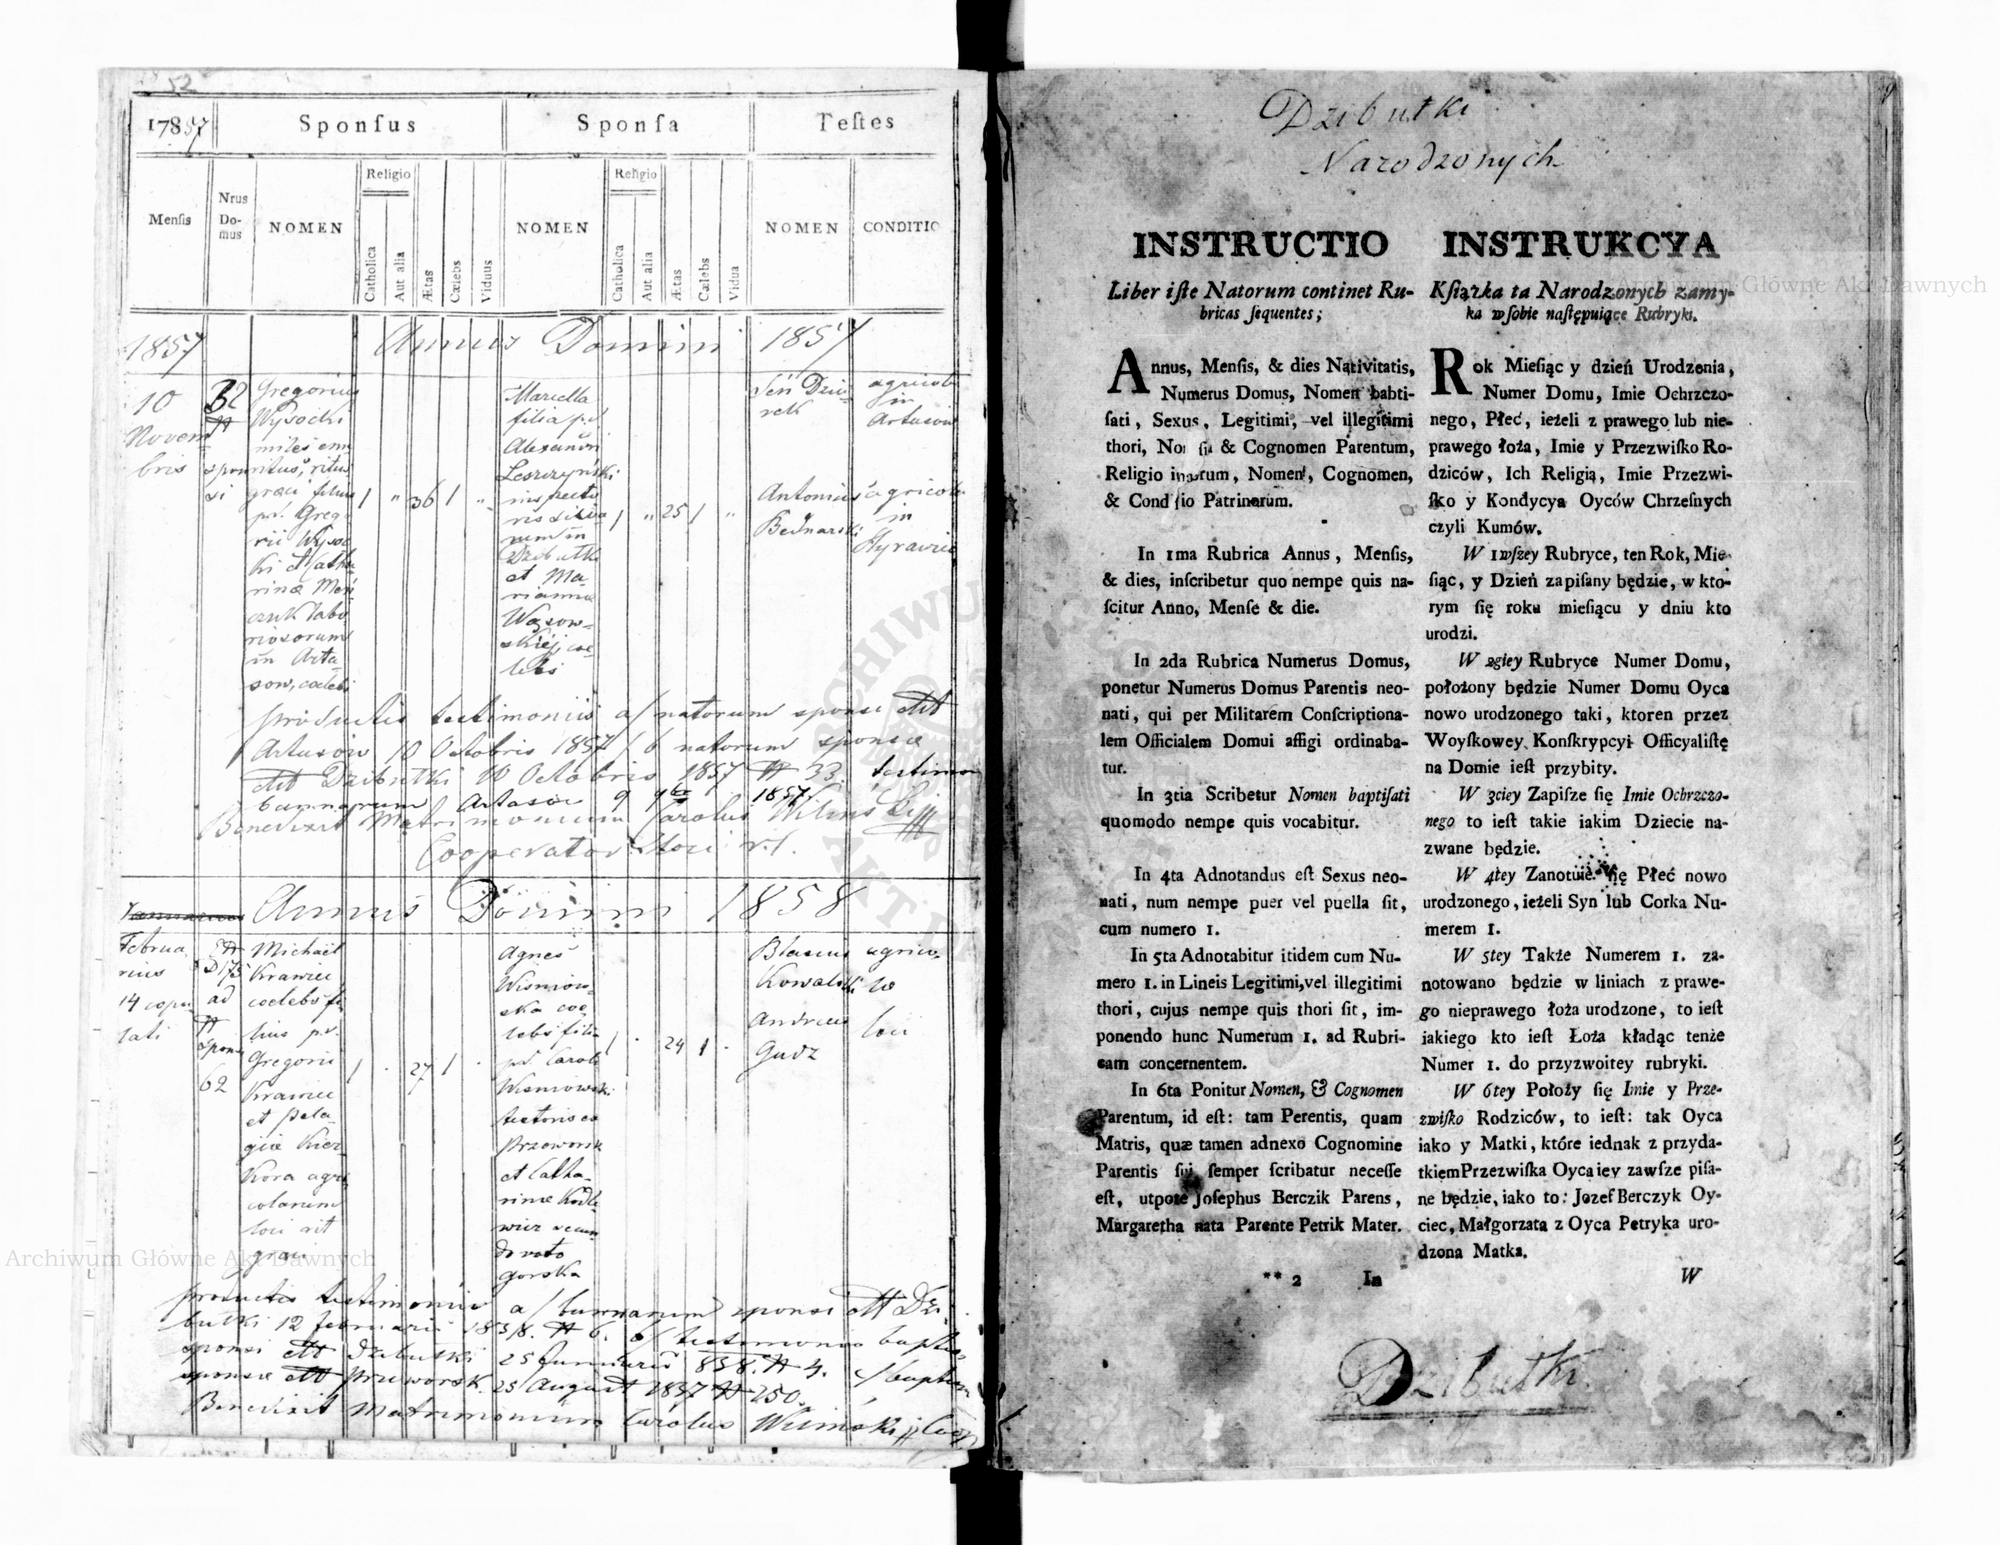 52
17857
Sponſus
Sponſa
Teſtes
Menſis
Nrus
Do-
mus
NOMEN
Religio
Catholica
Aut alia
Ætas
Cælebs
Viduus
NOMEN
Religio
Catholica
Aut alia
Ætas
Cælebs
Vidua
NOMEN
CONDITIO
1857 Annus Domini 1857
10
Novem
bris
32
spon
si
Gregorius
Wysocki
miles eme
ritus, ritus
græci filius
p.d. Grego
rii Wysoc
ki et Catha
rinæ
labo
riosorum
in Arta
sow, coelebs
1 " 36 1 "
Marcella
filia p.d.
Alexandri
Leszczynski
inspecto
ris
rum in
Dzibutki
et Ma
rianna
Wąsow-
skiej, coe-
lebs
1 " 25 1 "
Sen Dziu-
rek
agricola
in
Artasow
Antonius
Bednarski
agricola
in
productis testimoniis a/ natorum sponsi ddt
Artasów 10 Octobris 1857 / b natorum sponsæ
ddt Dzibutki 10 Octobris 1857 N 33. testimo
bannorum Artasów 9 9b 1857
Benedixit Matrimonium Carolus
Cooperator loci r.l.
Annus Domini 1858
Februa
rius
14 copu
lati
N
D 175
ad
N
spons
62
Michael
Krawiec
coelebs fi
lius p.d.
Gregorii
Krawiec
et Pela
giæ Kicz
kora agri
colarum
loci rit
græci
1 . 27 1 .
Agnes
Wisniow-
ska coe-
lebs filia
p.d. Caroli
Wisniowski
textoris ex
Przeworsk
et Catha
rinæ
wicz secun
do voto
gorska
1 . 24 1 .
Blasius
Kowalski
Andreas
Gudz
agrico
læ
loci
productis testimoniis a/ bannarum sponsi ddt Dzi
butki 12 februarii 1858. N 6. b/ testimonio baptis
sponsi ddt Dzibutki 25 Januarii 858. N 4. c/ baptis
sponsæ ddt Przeworsk. 25 August 1857 N 250.
Benedixit Matrimonium Carolus Wiliński Coop
Dzibutki
Narodzonych
INSTRUCTIO
Liber iſte Natorum continet Ru-
bricas ſequentes;
Annus, Menſis, & dies Nativitatis,
Numerus Domus, Nomen babti-
ſati, Sexus, Legitimi, vel illegitimi
thori, Nomen & Cognomen Parentum,
Religio inorum, Nomen, Cognomen,
& Conditio Patrinorum.
In 1ma Rubrica Annus, Menſis,
& dies, inſcribetur quo nempe quis na-
ſcitur Anno, Menſe & die.
In 2da Rubrica Numerus Domus,
ponetur Numerus Domus Parentis neo-
nati, qui per Militarem Conſcriptiona-
lem Officialem Domui affigi ordinaba-
tur.
In 3tia Scribetur Nomen baptiſati
quomodo nempe quis vocabitur.
In 4ta Adnotandus eſt Sexus neo-
nati, num nempe puer vel puella ſit,
cum numero 1.
In 5ta Adnotabitur itidem cum Nu-
mero 1. in Lineis Legitimi, vel illegitimi
thori, cujus nempe quis thori ſit, im-
ponendo hunc Numerum 1. ad Rubri-
cam concernentem.
In 6ta Ponitur Nomen, & Cognomen
Parentum, id eſt: tam Perentis, quam
Matris, quæ tamen adnexo Cognomine
Parentis ſui ſemper ſcribatur neceſſe
eſt, utpote Joſephus Berczik Parens,
Margaretha nata Parente Petrik Mater.
** 2 In
INSTRUKCYA
Kſiążka ta Narodzonych zamy-
ka w ſobie naſtępuiące Rubryki.
Rok Mieſiąc y dzień Urodzenia,
Numer Domu, Imie Ochrzczo-
nego, Płeć, ieżeli z prawego lub nie-
prawego łoża, Imie y Przezwiſko Ro-
dziców, Ich Religią, Imie Przezwi-
ſko y Kondycya Oyców Chrzeſnych
czyli Kumów.
W 1wſzey Rubryce, ten Rok, Mie-
ſiąc, y Dzień zapiſany będzie, w kto-
rym ſię roku mieſiącu y dniu kto
urodzi.
W 2giey Rubryce Numer Domu,
położony będzie Numer Domu Oyca
nowo urodzonego taki, ktoren przez
Woyſkowey Konſkrypcyi Officyaliſtę
na Domie ieſt przybity.
W 3ciey Zapiſze ſię Imie Ochrzczo-
nego to ieſt takie iakim Dziecie na-
zwane będzie.
W 4tey Zanotuie ſię Płeć nowo
urodzonego, ieżeli Syn lub Corka Nu-
merem 1.
W 5tey Także Numerem 1. za-
notowano będzie w liniach z prawe-
go nieprawego łoża urodzone, to ieſt
iakiego kto ieſt Łoża kładąc tenże
Numer 1. do przyzwoitey rubryki.
W 6tey Położy ſię Imie y Prze-
zwiſko Rodziców, to ieſt: tak Oyca
iako y Matki, które iednak z przyda-
tkiem Przezwiſka Oyca iey zawſze piſa-
ne będzie, iako to: Jozef Berczyk Oy-
ciec, Małgorzata z Oyca Petryka uro-
dzona Matka.
W
Dzibutki
Archiwum Główne Akt Dawnych
Archiwum Główne Akt Dawnych